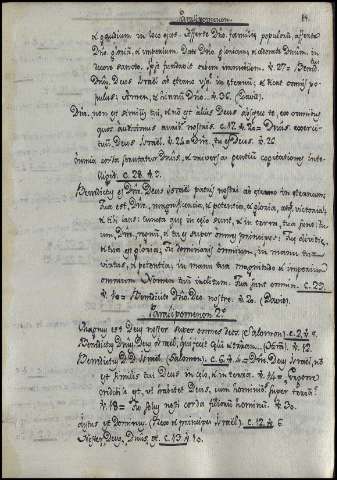 Paralipomenon. 14.
& gaudium in loco ejus. Afferte Dno. familiæ populorū, afferte
Dno. gloriā, & imperium. Date Dno. gloriam, & adorate Dnum. in
decore sancto. Ipse fundavit orbem immobilem. ℣. 27 =
Dnus. Deus Israël ab æterno usq. in æternū; & dicat omnis po-
pulus: Amen, & Dno. ℣. 36. (David).
Dne. non est similis tui, & nō est alius Deus absque te, ex omnibus
quos audivimus auribus nostris. c. 17. ℣. 20 = Dnus. exerci-
tuū, Deus Israël. ℣. 24 = Dne. tu es Deus. ℣. 26.
Omnia corda scrutatur Dnus., & universas mentiū cogitationes inte-
lligit. c. 28. ℣. 9.
Benedictus es Dne. Deus Israël patris nostri ab æterno in æternum;
Tua est, Dne., magnificentia, & potentia, & gloria, atq. victoria;
& tibi laus: cuncta quæ in cœlo sunt, & in terra, tua sunt:
tuum, Dne., regnū, & tu es super omnes principes: Tuæ divitiæ,
& tua est gloria: Tu dominaris omnium, in manu tua
virtus, & potentia: in manu tua magnitudo & imperium
omnium. Nomen tuū inclitum. Tua sunt omnia. c. 29.
℣. = Benedicite Dno. Deo nostro. ℣. 20. (David).
Paralipomenon 2º
Magnus est Deus noster super omnes deos. (Salomon). c. 2. ℣. 5.
Benedictus Dnus. Deus Israël, qui fecit cælū & terram. ℣. 12.
Benedictus D. D. Israël. (Salomon). c. 6. ℣. 4 = Dne. Deus Israël, nō
est similis tui Deus in cœlo, & in terra. ℣. 14 = Ergone
credibile est, ut habitet Deus cum hominibus super terrā?
℣. 18 = Tu solus nosti corda filiorū hominū. ℣. 30.
Justus est Dominus. (Rex & principes Israël). c. 12. ℣. 6.
Noster Deus, Dnus. est. c. 13. ℣. 10.